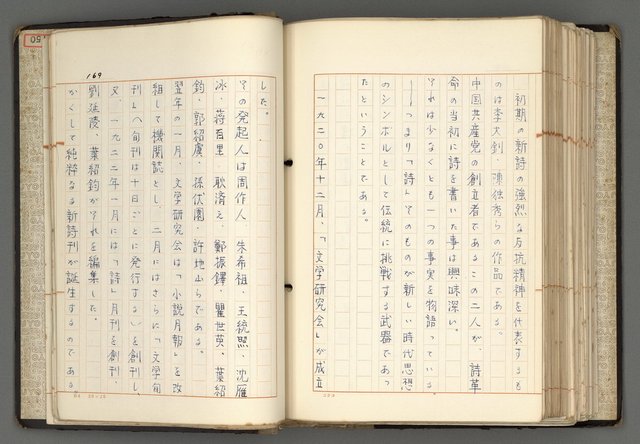 初期の新詩の強烈な反抗精神を代表するも
のは李大釗、陳独秀らの作品である。
中国共産党の創立者であるこの二人が、詩革
命の当初に詩を書いた事は興味深い。
それは少なくとも一つの事実を物語っている
──つまり「詩」そのものが新しい時代思想
のシンボルとして伝統に挑戦する武器であっ
たということである。
一九二〇年十二月、「文学研究会」が成立
した。
その発起人は周作人、朱希祖、王統照、沈雁
冰、蒋百里、耿済之、鄭振鐸、瞿世英、葉紹
鈞、郭紹虞、孫伏園、許地山らである。
翌年の一月、文学研究会は「小説月報」を改
組して機関誌とし、二月にはさらに「文学旬
刊」（旬刊は十日ごとに発行する）を創刊し、
又、一九二二年一月には「詩」月刊を創刊、
劉延陵、葉紹鈞がそれを編集した。
かくして純粋なる新詩刊が誕生するのである。
169
50